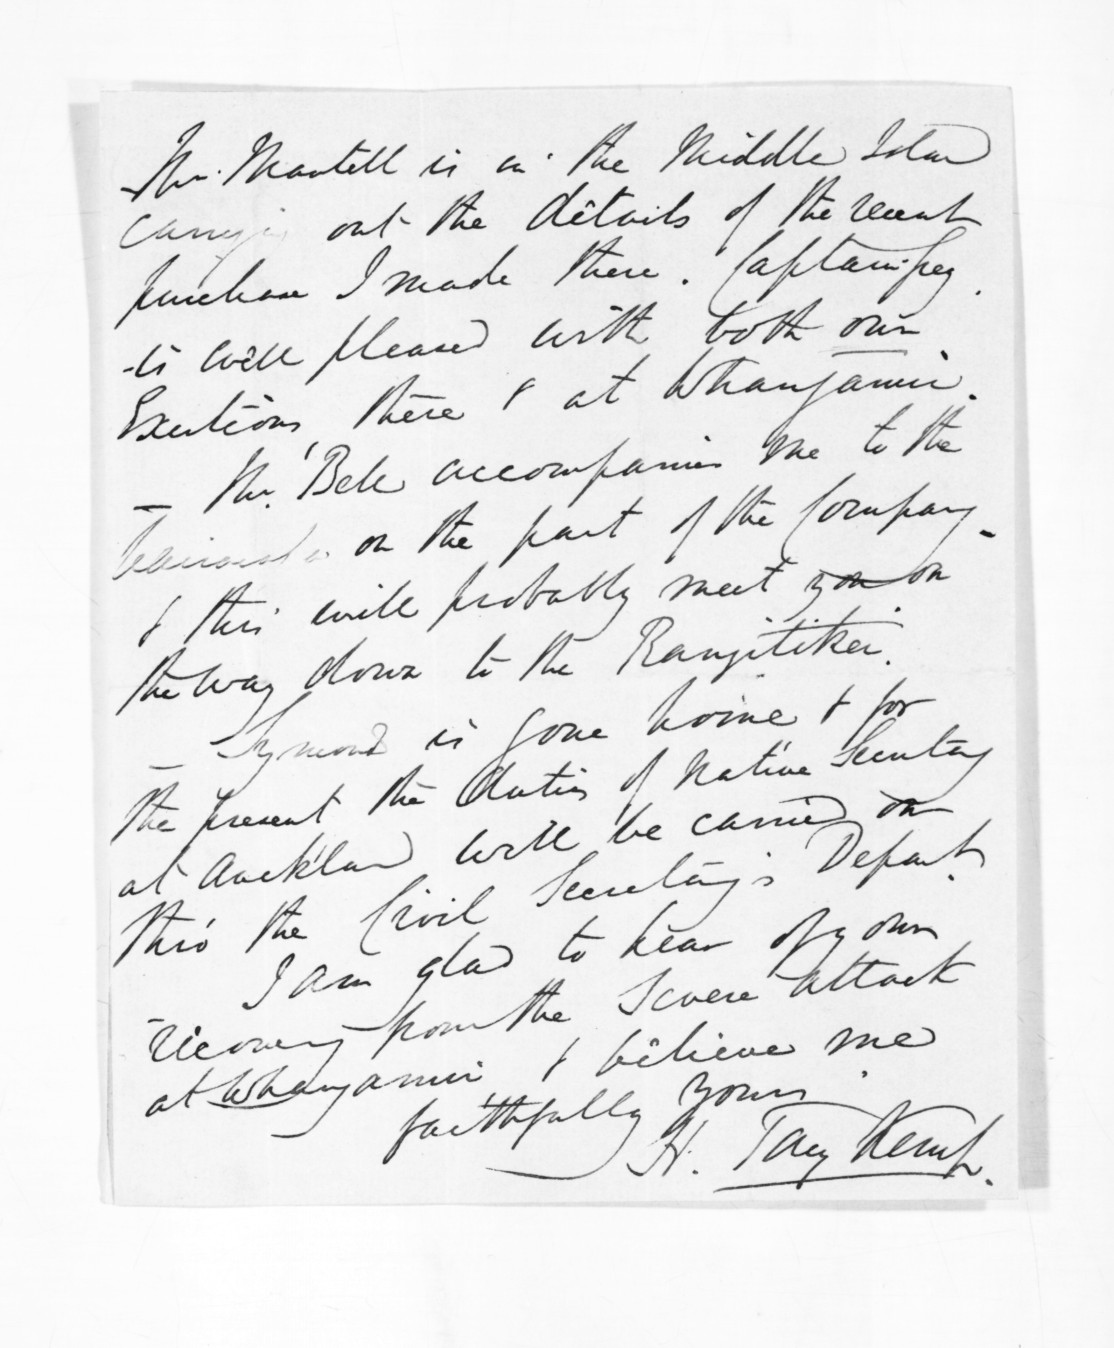 Mr. Mantell is in the Middle Island
carrying out the details of the recent
purchase I made there. Captain Grey
is well pleased with both our
Exertions there & at Whanganui.
- Mr. Bell accompanies me to the
Wairarapa on the part of the Company -
& this will probably meet you on
the way down to the Rangitikei.
- Symonds is gone home & for
the present the duties of Native Secretary
at Auckland will be carried on
thro' the Civil Secretary's Depart.
I am glad to hear of your
recovery from the severe attack
at Whanganui & believe me
faithfully yours
H. Tacy Kemp.